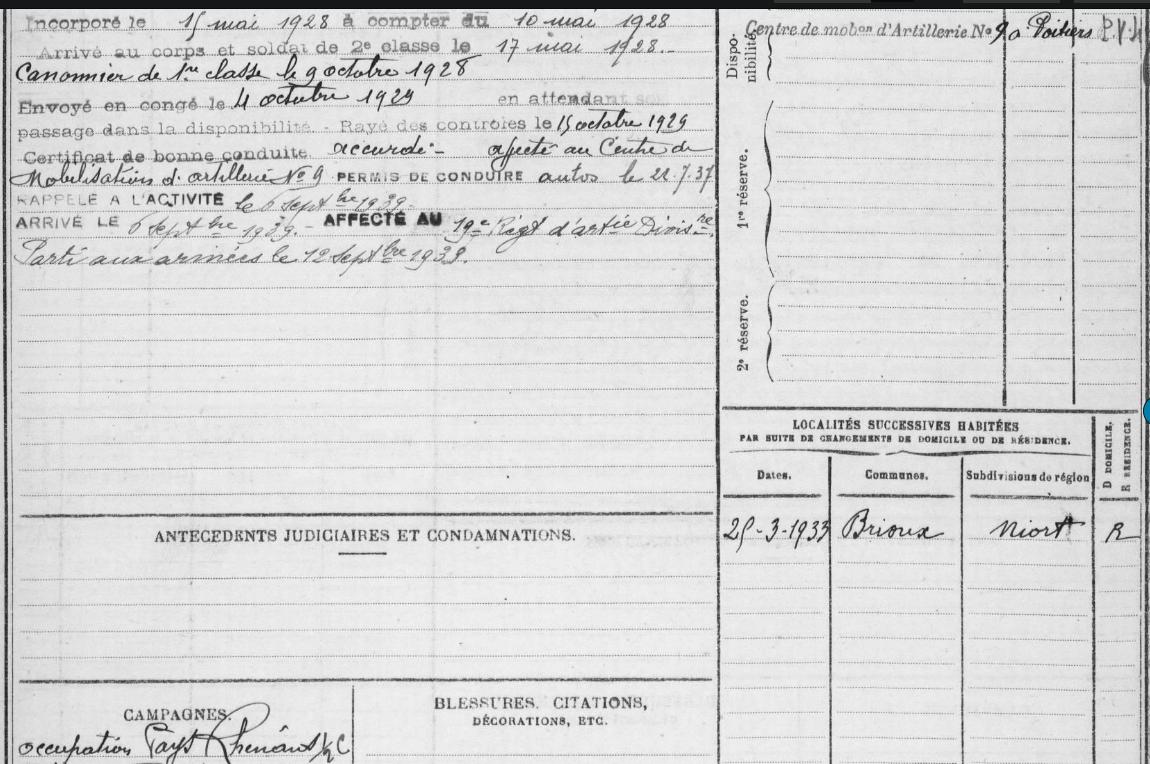 Incorporé le 15 mai 1928 à compter du 10 mai 1928
Arrivé au corps et soldat de 2e classe le 17 mai 1928.-
Canonnier de 1re classe le 9 octobre 1928
Envoyé en congé le 4 octobre 1929 en attendant son
passage dans la disponibilité - Rayé des contrôles le 15 octobre 1929
Certificat de bonne conduite accordé - affecté au Centre de
Mobilisation d'artillerie No 9 PERMIS DE CONDUIRE autos le 22.7.37
RAPPELÉ A L'ACTIVITÉ le 6 Septbre 1939.
ARRIVÉ LE 6 Septbre 1939. - AFFECTÉ AU 19e Régt d'artie Divisre.
Parti aux armées le 12 Septbre 1939.
ANTÉCÉDENTS JUDICIAIRES ET CONDAMNATIONS.
CAMPAGNES.
occupation Pays Rhénans
BLESSURES, CITATIONS,
DÉCORATIONS, ETC.
Dispo-
nibilité.
Centre de mobon d'Artillerie No 9 à Poitiers
1re réserve.
2e réserve.
LOCALITÉS SUCCESSIVES HABITÉES
PAR SUITE DE CHANGEMENTS DE DOMICILE OU DE RÉSIDENCE.
D DOMICILE,
R RÉSIDENCE.
Dates. Communes. Subdivisions de région
25-3-1933 Brioux Niort R